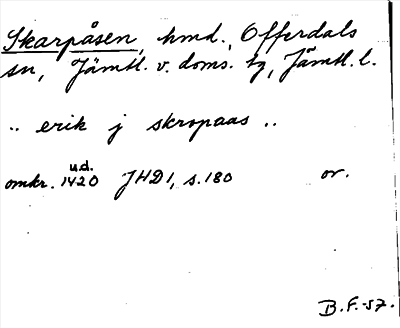 Skarpåsen, hmd., Offerdals
sn, Jämtl. v. doms. tg, Jämtl. l.
.. erik j skropaas ..
u.d.
omkr. 1420 JHD 1, s. 180 or.
B.F.-57.